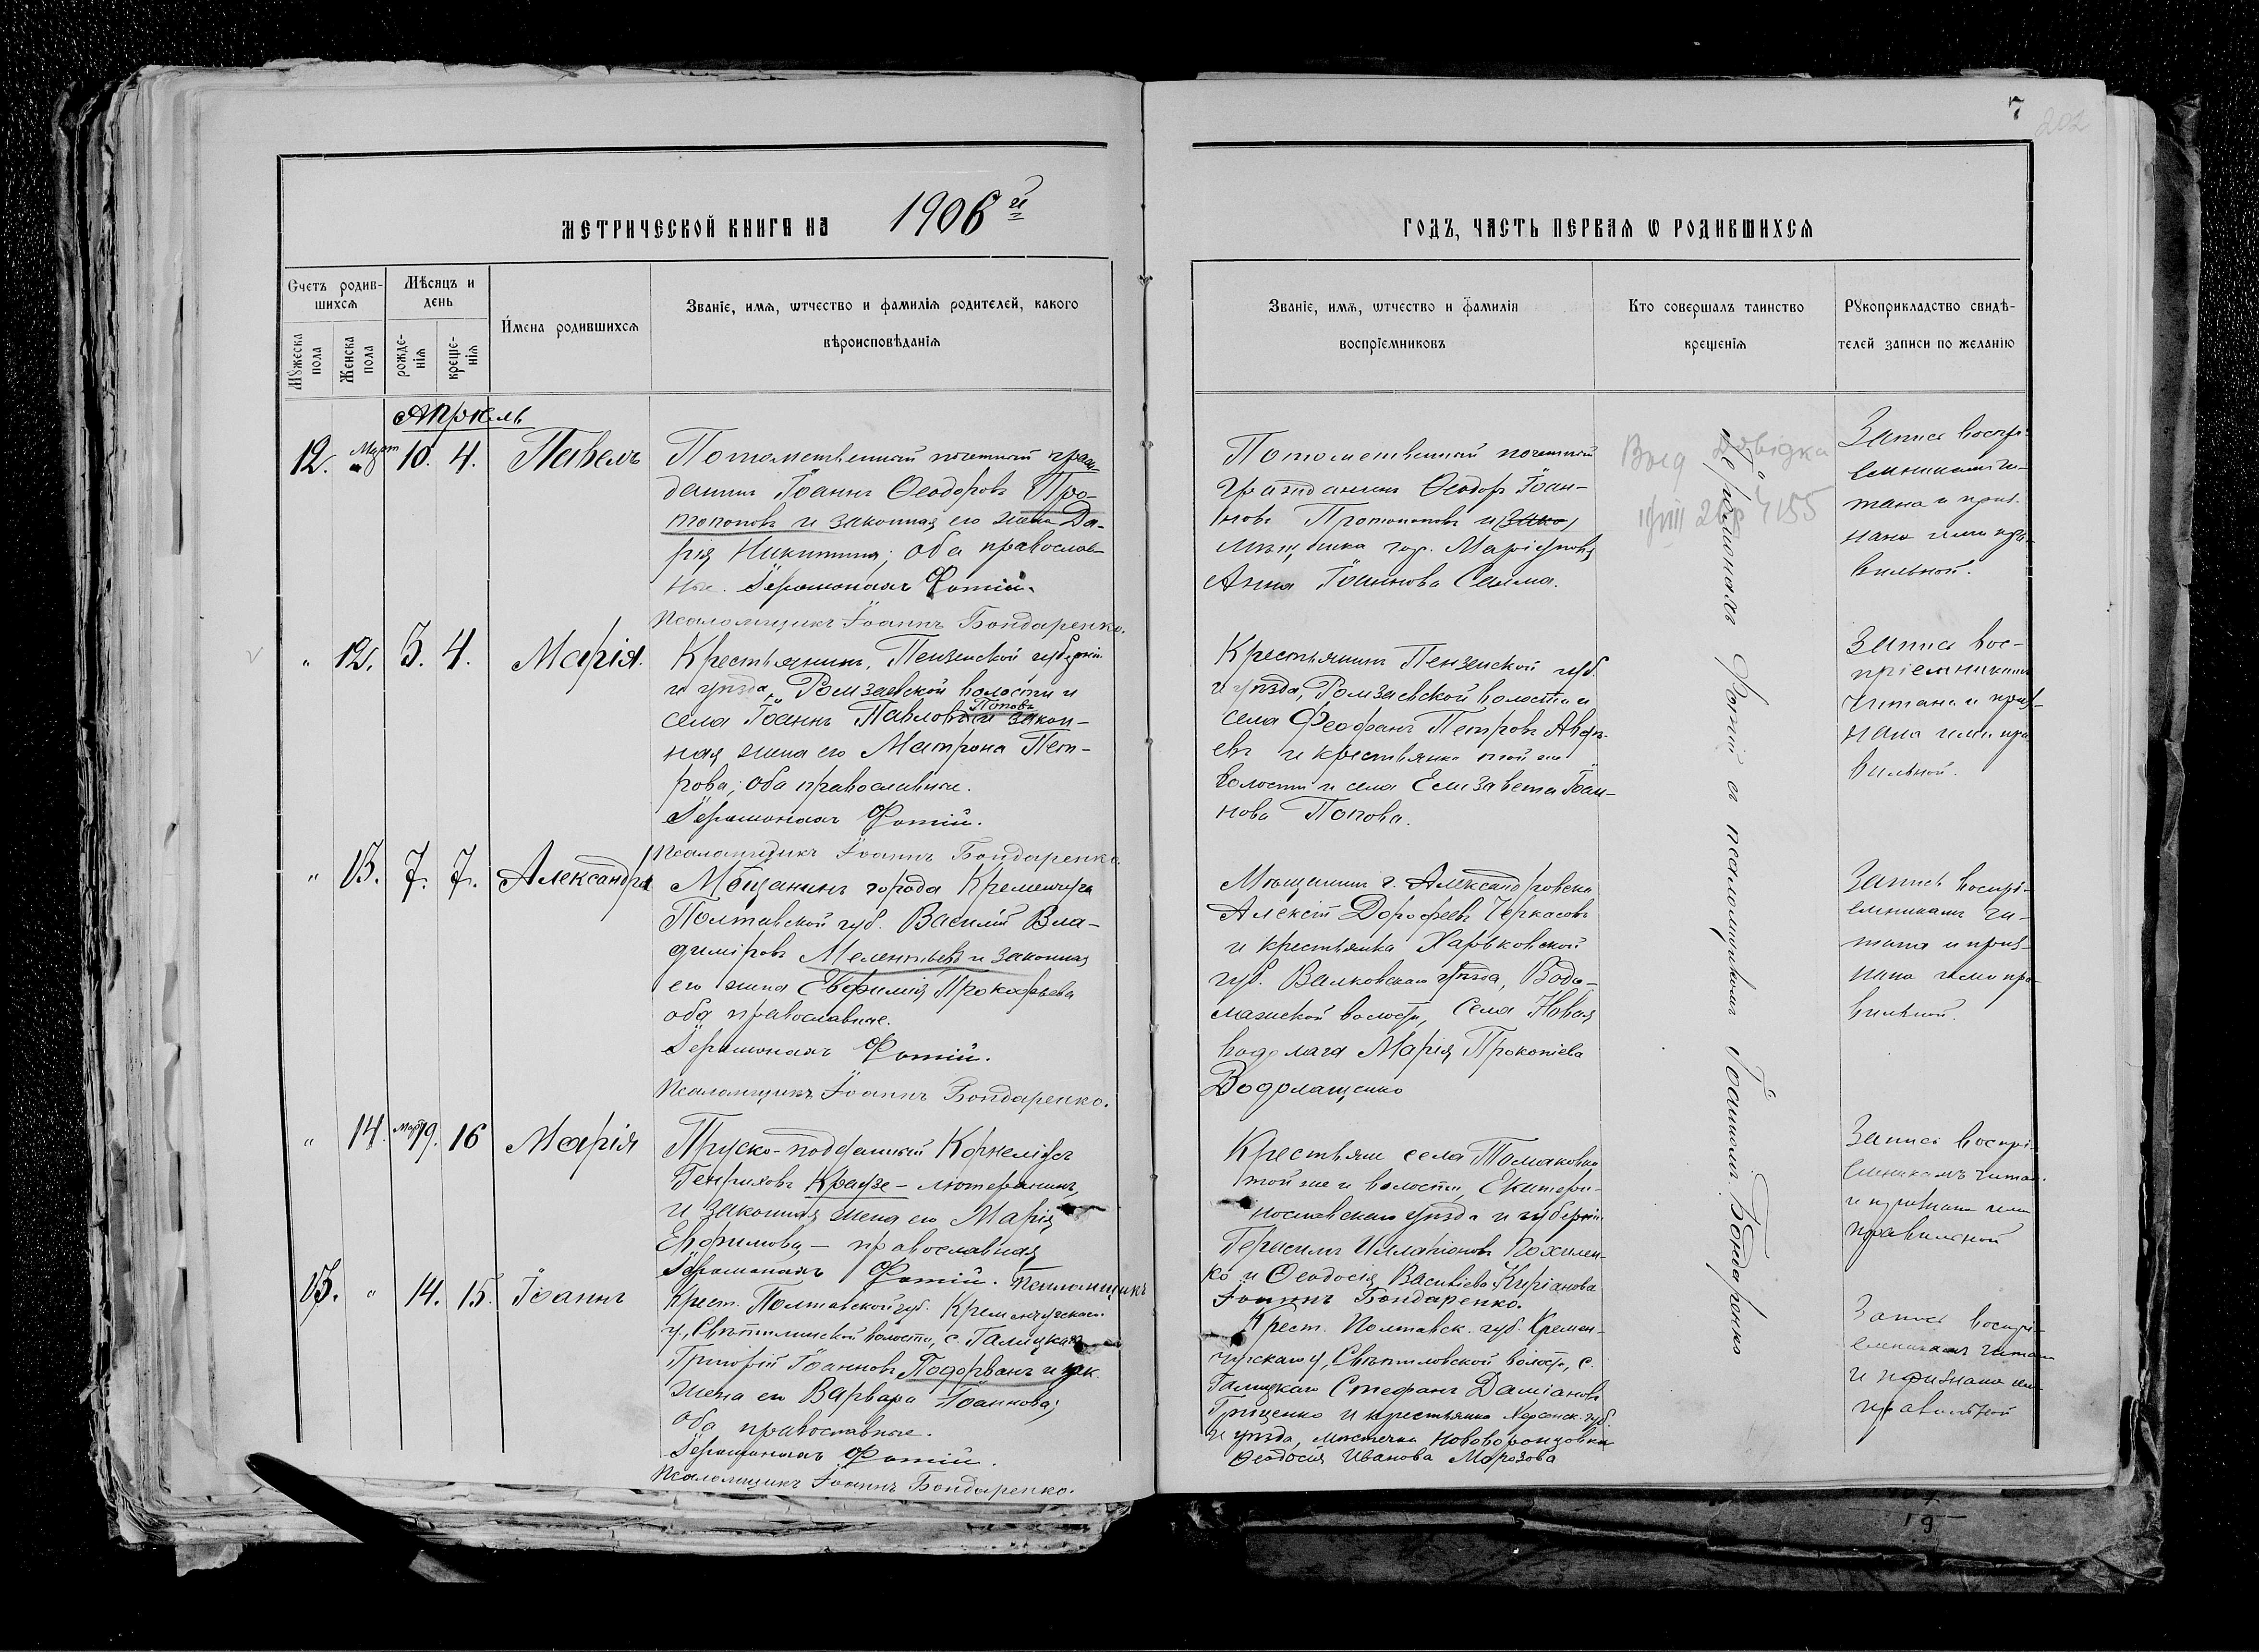 7
202
МЕТРИЧЕСКОЙ КНИГИ НА 1906 й
ГОДЪ, ЧАСТЬ ПЕРВАѦ Ѡ РОДИВШИХСѦ
Счетъ родив-
шихсѧ
Мѣсяцъ и
день
Мꙋжеска пола
Женска пола
рожде-
нїѧ
креще-
нїѧ
Имена родившихсѧ
Званїе, имѧ, ѡтчество и фамилїѧ родителей, какого
вѣроисповѣданїѧ
Званїе, имѧ, ѡтчество и фамилїѧ
воспрїемниковъ
Кто совершалъ таинство
крещенїѧ
Рꙋкоприкладство свидѣ-
телей записи по желанїю
Апрель
12. " Март 10. 4. Павелъ
Потомственный почетный граж-
данинъ Іоаннъ Ѳеодоровъ Про-
топоповъ и законная его жена Да-
рія Никитина; оба православ-
ные. Іеромонахъ Фотій.
Псаломщикъ Іоаннъ Бондаренко.
Потомственный почетный
гражданинъ Ѳеодоръ Іоан-
новъ Протопоповъ и зако
мѣщанка гор. Маріуполя
Анна Іоаннова
Запись воспрі-
емникамъ чи-
тана и приз-
нана ими пра-
вильной.
" 12. 3. 4. Марія.
Крестьянинъ, Пензенской губерніи
и уѣзда, Рамзаевской волости и
села Іоаннъ Павловъ Поповъ и закон-
ная жена его Матрона Пет-
рова; оба православные.
Іеромонахъ Фотій.
Псаломщикъ Іоаннъ Бондаренко.
Крестьянинъ Пензенской губ.
и уѣзда, Рамзаевской волости и
села Феофанъ Петровъ Авдѣ-
евъ и крестьянка той же
волости и села Елизавета Іоан-
нова Попова.
Запись вос-
пріемникамъ
читана и приз-
нана ими пра-
вильной.
" 13. 7. 7. Александра
Мѣщанинъ города Кременчуга
Полтавской губ. Василій Вла-
диміровъ Мелентьевъ и законная
его жена Евфимія Прокофьева
оба православные.
Іеромонахъ Фотій.
Псаломщикъ Іоаннъ Бондаренко.
Мѣщанинъ г. Александровска
Алексій Дорофеевъ Черкасовъ
и крестьянка Харьковской
губ. Валковскаго уѣзда, Водо-
лажской волости, села Новая
водолага Марія Прокопіева
Водолащенко
Запись воспрі-
емникамъ чи-
тана и приз-
нана ими пра-
вильной.
" 14. Март 19. 16 Марія
Пруско-подданный Корнеліусъ
Генриховъ Краузе - лютеранинъ,
и законная жена его Марія
Евфимова - православная
Іеромонахъ Фотій. Псаломщикъ
Іоаннъ Бондаренко.
Крестьяне села Томаковки
той же и волости, Екатери-
нославскаго уѣзда и губерніи
Герасимъ Илларіоновъ Похилен-
ко и Ѳеодосія Васильева Кирьянова
Запись воспрі-
емникамъ читана
и признана ими
правильной
15. " 14. 15. Іоаннъ
Крест. Полтавской губ. Кременчугскаго
у., Свѣтиловской волости, с. Галицкаго
Григорій Іоанновъ Подорванъ и зак.
жена его Варвара Іоаннова;
оба православные.
Іеромонахъ Фотій.
Псаломщикъ Іоаннъ Бондаренко.
Крест. Полтавск. губ. Кремен-
чугскаго у., Свѣтиловской волости, с.
Галицкаго Стефанъ Даміановъ
Грищенко и крестьянка Херсонск. губ.
и уѣзда, мѣстечка Нововоронцовки
Ѳеодосія Иванова Морозова
Запись воспрі-
емникамъ читана
и признана ими
правильной
Іеромонахъ Фотій съ псаломщикомъ Іоанномъ Бондаренко